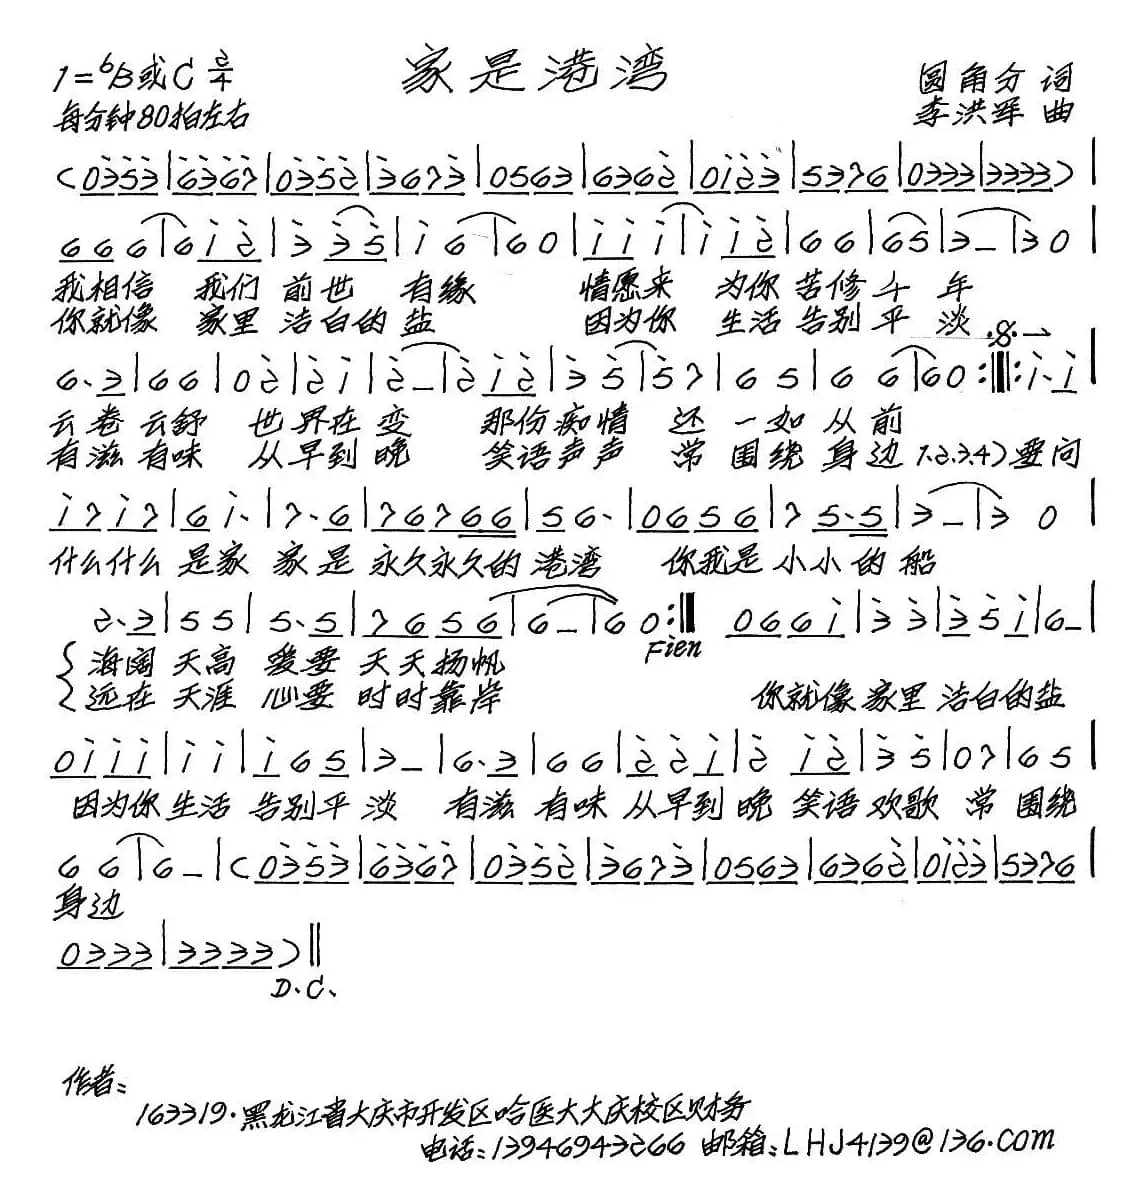 家是港湾
1=♭B或C 2/4
圆角分 词
每分钟80拍左右
李洪军 曲
(0353|6367|0352|3673|0563|6362|0123|5376|0333|3333)|
666|612|335|16|60|111|112|66|65|3-|30|
我相信 我们 前世 有缘 情愿来 为你 苦修 千 年
你就像 家里 洁白的 盐 因为你 生活 告别 平 淡
6.3|66|02|21|2-|212|35|57|65|66|60:||:1.1|
云卷 云舒 世界在 变 那份痴情 还 一如 从 前
有滋 有味 从早到 晚 笑语声声 常 围绕 身 边 1.2.3.4)要问
1717|61.|7.6|76766|56.|0656|75.5|3-|3 0|
什么什么 是家 家是 永久永久的 港湾 你我是 小小的 船
2.3|55|5.5|7656|6-|60:|| 0661|33|351|6-|
Fien
海阔 天高 爱要 天天扬帆
远在 天涯 心要 时时靠岸 你就像 家里 洁白的盐
0111|11|165|3-|6.3|66|221|2 12|35|07|65|
因为你 生活 告别平 淡 有滋 有味 从早到 晚 笑语 欢歌 常 围绕
66|6-|(0353|6367|0352|3673|0563|6362|0123|5376|
身边
0333|3333)||
D.C.
作者:
163319.黑龙江省大庆市开发区哈医大大庆校区财务
电话:13946943266 邮箱:LHJ4139@136.com